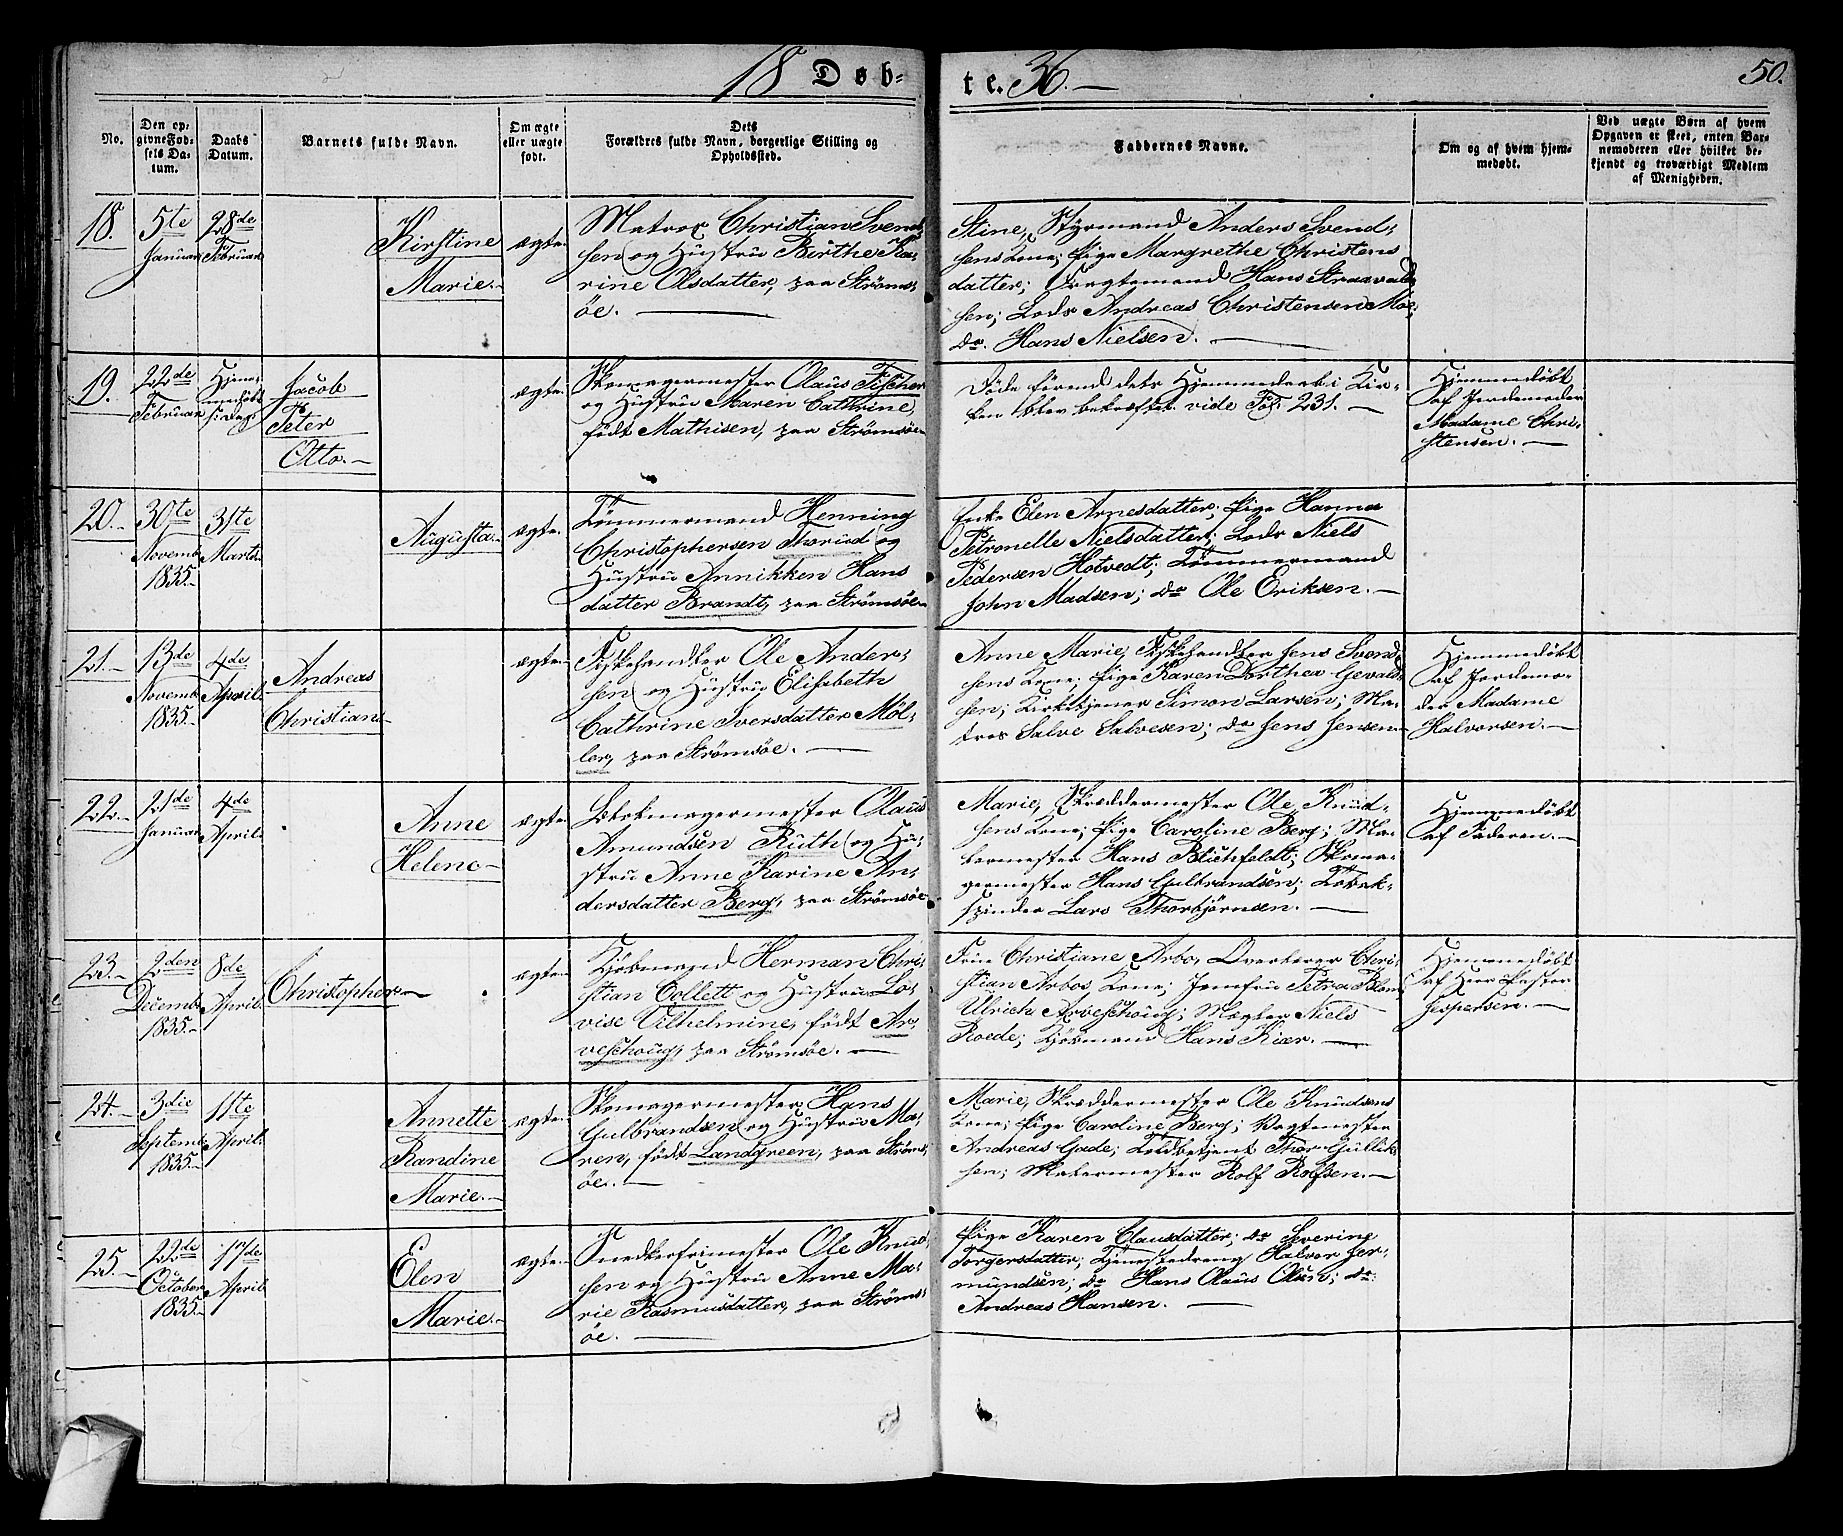 18 Døb-
te. 36.-
50.
No.
Den op-
givne Fød-
sels Da-
tum.
Daabs
Datum.
Barnets fulde Navn.
Om ægte
eller uægte
født.
Dets
Forældres fulde Navn, borgerlige Stilling og
Opholdssted.
Faddernes Navne.
Om og af hvem hjem-
medøbt.
Ved uægte Børn af hvem
Opgaven er skeet, enten Bar-
nemoderen eller hvilket be-
kjendt og troværdigt Medlem
af Menigheden.
18.
5te
Januar
28de
Februar
Kirstine
Marie.-
ægte.
Matros Christian Svend-
sen og Hustru Birthe Ka-
rine Olsdatter, paa Strøms-
øe.-
Stine, Styrmand Anders Svend-
sens Kone; Pige Margrethe Christens
datter; Hans
sen; Lods Andreas Christensen Moe;
do. Hans Nielsen.-
19.
22de
Februar
Hjem-
medøbt
s: dag
Jacob
Peter
Otto.-
ægte.
Skomagermester Olaus Fischer
og Hustru Maren Cathrine,
født Mathisen, paa Strømsøe-
Døde førend dets Hjemmedaab i Kir-
ken blev bekræftet. vide Fol: 231.-
Hjemmedøbt
af Jordemoder
Madame Chri-
stensen.-
20.-
30te
Novemb.
1835.-
31te
Marts
Augusta.-
ægte.
Tømmermand Henning
Christophersen Thorud og
Hustru Annikken Hans
datter Brandt, paa Strømsøe-
Enke Elen Arnesdatter; Pige Hanna
Petronelle Nielsdatter; Lods Niels
Pedersen Hotvedt; Tømmermand
John Madsen; do Ole Eriksen.-
21.-
13de
Novemb.
1835.-
4de
April.
Andreas
Christian.-
ægte.
Fiskehandler Ole Ander-
sen og Hustru Elisabeth
Cathrine Iversdatter Møl-
ler, paa Strømsøe.-
Anne Marie, Fiskehandler Jens Svend-
sens Kone; Pige Karen Dorthea Gevald-
sen; Kirketjener Simon Larsen; Ma-
tros Salve Salvesen; do Jens Jensen.-
Hjemmedøbt
af Jordemo-
der Madame
Halvorsen.-
22.-
21de
Januar
4de
April.
Anne
Helene-
ægte.
Tobakmagermester Olaus
Amundsen Ruth og Hu-
stru Anne Karine An-
dersdatter Berg, paa Strømsøe
Marie, Skræddermester Ole Knud-
sens Kone; Pige Caroline Berg; Ma-
lermester Hans Blichfeldt; Skoma-
germester Hans Gulbrandsen; Tobak-
spinder Lars Thorbjørnsen.-
Hjemmedøbt
af Faderen.-
23.-
2den
Decemb.
1835.-
8de
April.
Christopher-
ægte.
Kjøbmand Herman Chri-
stian Collett og Hustru Lo-
vise Vilhelmine, født Ar-
veschoug, paa Strømsøe.-
Frue Christiane Arbo, Overkerer Chri-
stian Arbos Kone; Jomfru Petra Blom
Ulrich Arveschoug; Mægler Niels
Roede; Kjøbmand Hans Kiær.-
Hjemmedøbt
af Herr Pastor
Jespersen.-
24.-
3die
Septemb.
1835.-
11te
April.
Annette
Randine
Marie.-
ægte.
Skomagermester Hans
Gulbrandsen og Hustru Ma-
ren, født Landgreen, paa Strøms-
øe.-
Marie, Skræddermester Ole Knudsens
Kone; Pige Caroline Berg; Vagtmester
Andreas Gade; Toldbetjent Thor Gullik-
sen; Malermester Rolf Rolfsen.-
25.-
22de
October
1835.-
17de
April.
Elen
Marie.-
ægte.
Snedkerfrimester Ole Knud-
sen og Hustru Anne Ma-
rie Rasmusdatter, paa Strøms-
øe.-
Pige Karen Clausdatter; do Severine
Torgersdatter; Tjenestedreng Halvor Jer-
mundsen; do Hans Olaus Olsen; do.
Andreas Hansen.-